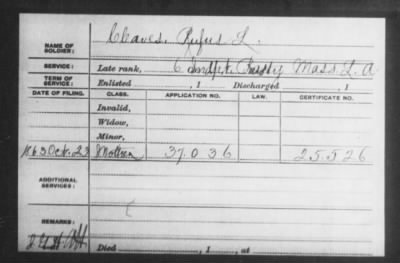 NAME OF SOLDIER: Cleaves, Rufus L.
SERVICE: Late rank, 6 Batty. Mass L. A
TERM OF SERVICE: Enlisted , 1 Discharged , 1
DATE OF FILING. CLASS. APPLICATION NO. LAW. CERTIFICATE NO.
Invalid,
Widow,
Minor,
Oct. 23 Mother 37.036 25.526
ADDITIONAL SERVICES:
REMARKS:
Died , 1 , at